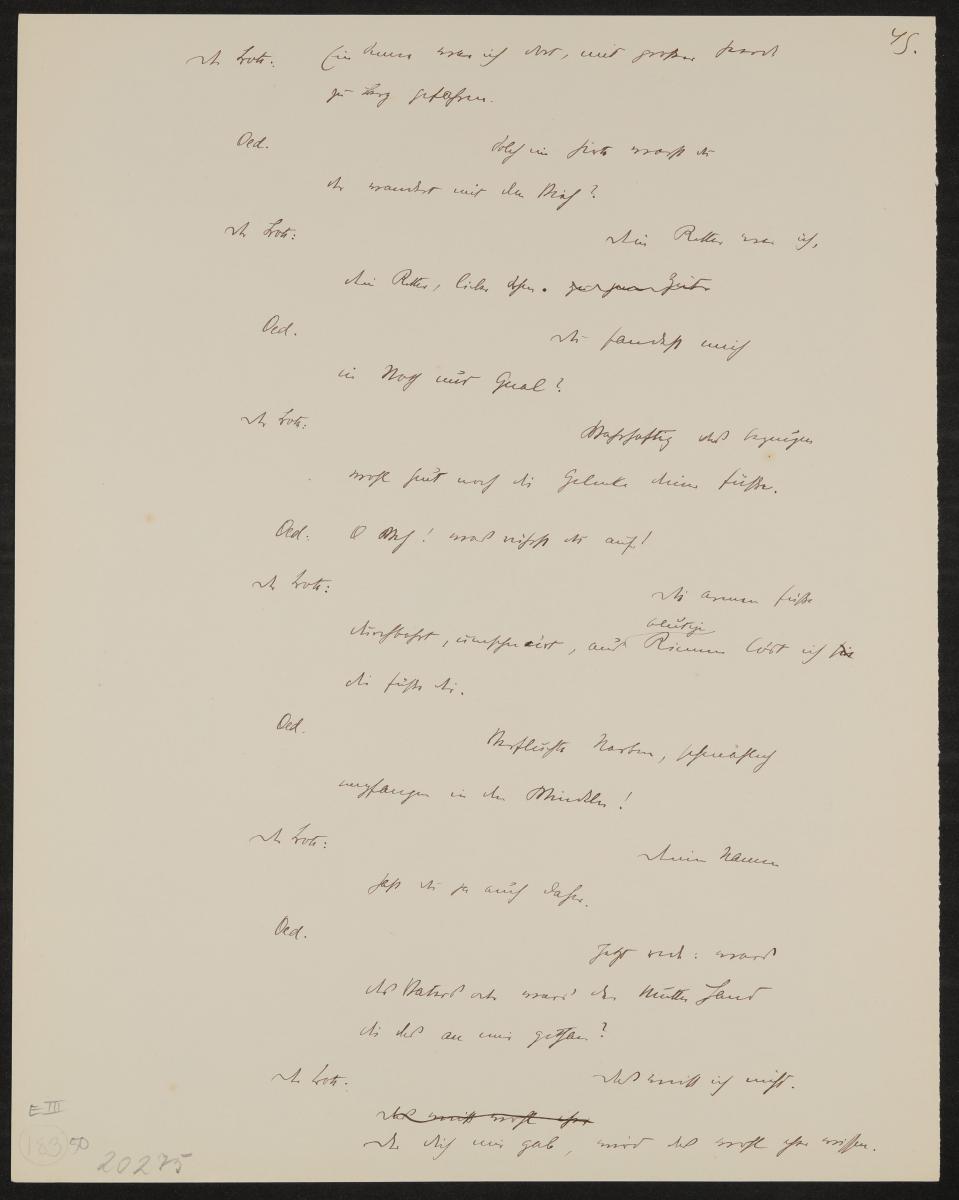 45.
der Bote: Ein Hirte war ich dort, mit großer Herde
zu Berg gefahren.
Oed. Solch ein Hirte warst du
der wandert mit dem Vieh?
der Bote: Dein Retter war ich,
dein Retter, lieber Sohn. zu jener Zeit
Oed. du fandest mich
in Noth und Qual?
der Bote: Wahrhaftig das bezeugen
wohl heut noch die Gelenke deiner Füße.
Oed: O Weh! was rührst du auf!
der Bote: die armen Füße
blutige
durchbohrt, umschnürt, aus Riemen löst ich sie
die Füße dir.
Oed. Verfluchte Narben, schmählich
empfangen in den Windeln!
der Bote: deinen Namen
hast du ja auch daher.
Oed. Jetzt red: ward
des Vaters oder ward der Mutter Hand
die das an mir gethan?
der Bote: das weiß ich nicht.
das weiß wohl eher
der dich mir gab, wird das wohl eher wissen.
E III
183 50
20275